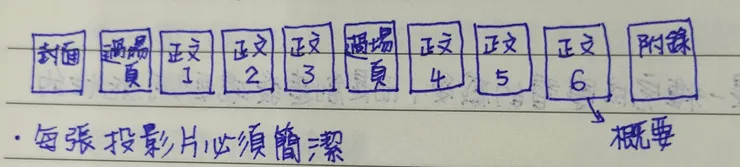 封面 過場頁 正文1 正文2 正文3 過場頁 正文4 正文5 正文6 附錄
概要
・每張投影片必須簡潔